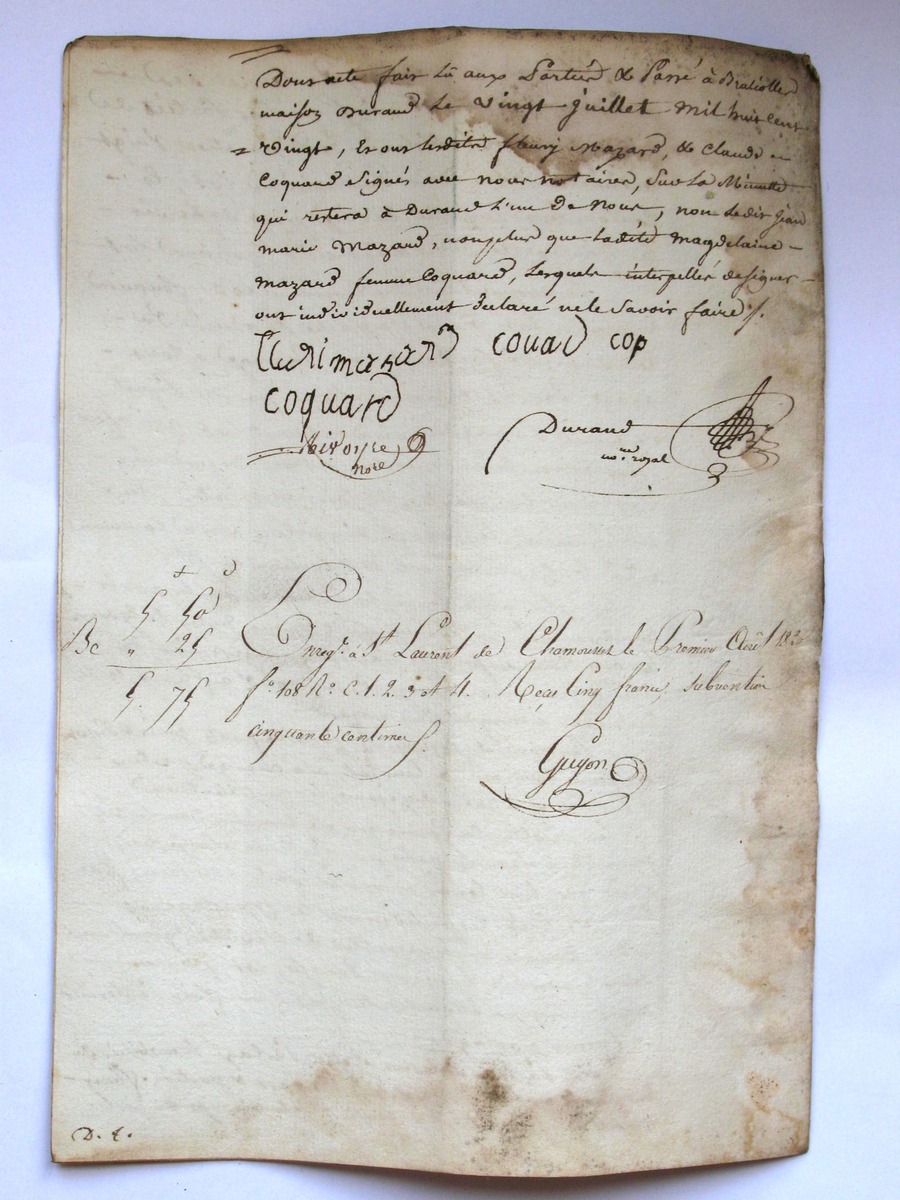 Dont acte fait lu aux Parties & Passé à
maison Durand Le vingt juillet mil huit cent
vingt, Et ont lesdits fleury Mazard, & Claude
Coquard signés avec nous notaires, Sur La Minutte
qui restera à Durand L'un de Nous, non ledit Jean
marie Mazard, non plus que ladite Magdelaine
Mazard femme Coquard, Lesquels interpellés de signer
ont individuellement déclaré ne le savoir faire /.
couad cop
coquard
Durand
nore
nre royal
5. 50
Enregt. à St Laurent de Chamousset le Premier Août 182
" 25
fo 108 No C. 1. 2. 3 et 4. Reçu Cinq francs, subvention
5. 75
cinquante centimes
Guyon